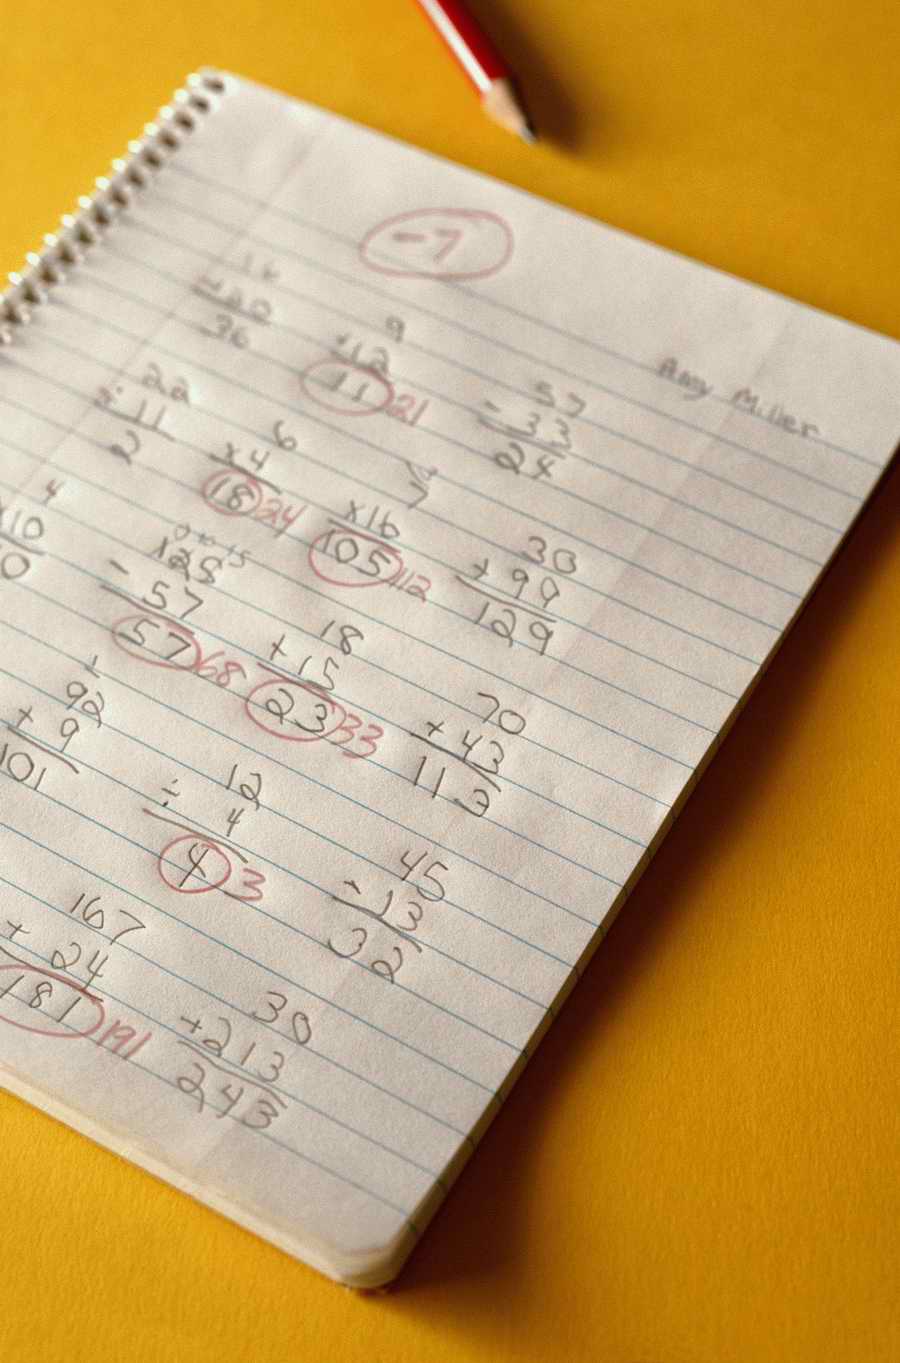 -7
Amy Miller
16
+20
36
9
+12
11 21
57
- 33
24
22
÷ 11
2
6
x4
18 24
7
x16
105 112
30
+ 99
129
4
x10
125
- 57
57 68
18
+ 15
23 33
70
+ 43
113
1
92
+ 9
101
12
÷ 4
4 3
45
- 13
32
167
+ 24
181 191
30
+213
243